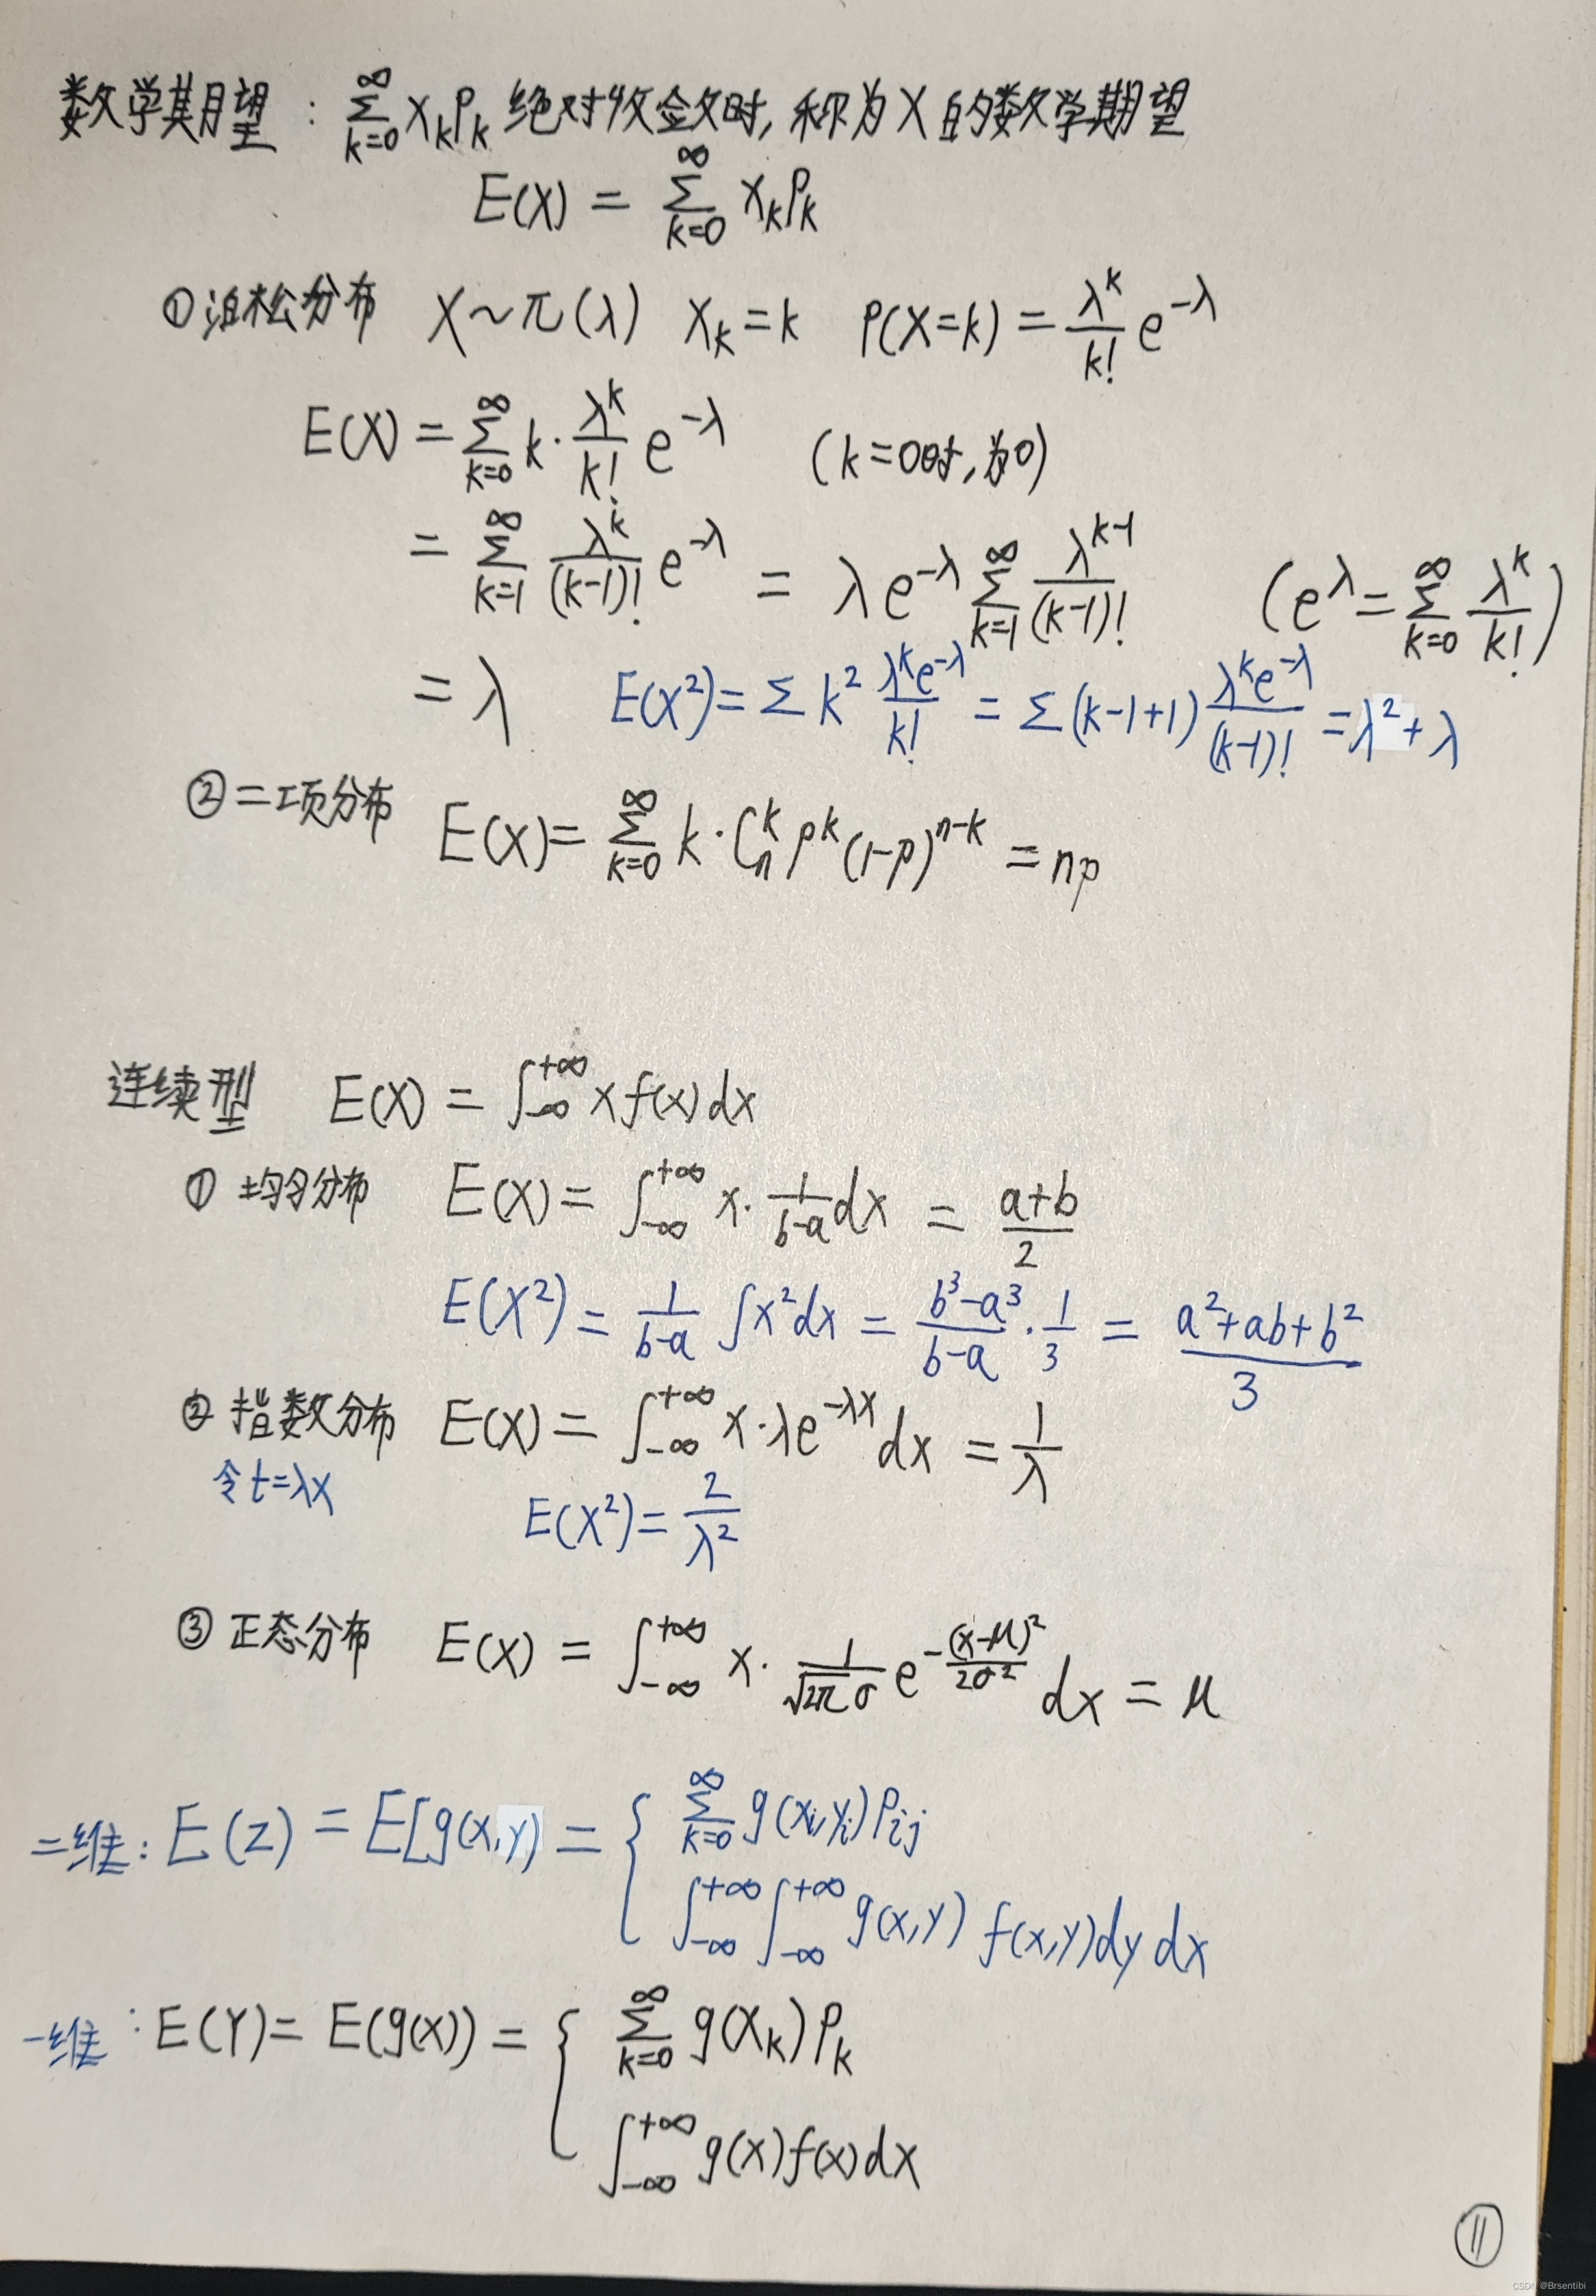 数学期望：∑_{k=0}^{∞} x_k p_k 绝对收敛时，称为X的数学期望
E(X) = ∑_{k=0}^{∞} x_k p_k
① 泊松分布 X~π(λ) x_k=k P(X=k) = \frac{λ^k}{k!} e^{-λ}
E(X) = ∑_{k=0}^{∞} k·\frac{λ^k}{k!} e^{-λ} (k=0时，为0)
= ∑_{k=1}^{∞} \frac{λ^k}{(k-1)!} e^{-λ} = λe^{-λ} ∑_{k=1}^{∞} \frac{λ^{k-1}}{(k-1)!} (e^λ = ∑_{k=0}^{∞} \frac{λ^k}{k!})
= λ E(X²) = ∑ k² \frac{λ^k e^{-λ}}{k!} = ∑ (k-1+1) \frac{λ^k e^{-λ}}{(k-1)!} = λ²+λ
② 二项分布 E(X) = ∑_{k=0}^{∞} k·C_n^k p^k (1-p)^{n-k} = np
连续型 E(X) = ∫_{-∞}^{+∞} x f(x) dx
① 均匀分布 E(X) = ∫_{-∞}^{+∞} x·\frac{1}{b-a} dx = \frac{a+b}{2}
E(X²) = \frac{1}{b-a} ∫x²dx = \frac{b³-a³}{b-a}·\frac{1}{3} = \frac{a²+ab+b²}{3}
② 指数分布 E(X) = ∫_{-∞}^{+∞} x·λe^{-λx} dx = \frac{1}{λ}
令t=λx E(X²) = \frac{2}{λ²}
③ 正态分布 E(X) = ∫_{-∞}^{+∞} x·\frac{1}{\sqrt{2π}σ} e^{-\frac{(x-μ)²}{2σ²}} dx = μ
二维：E(Z) = E[g(x,y) = { ∑_{k=0}^{∞} g(x_i,y_i) p_{ij}
∫_{-∞}^{+∞} ∫_{-∞}^{+∞} g(x,y) f(x,y) dy dx
一维：E(Y) = E(g(x)) = { ∑_{k=0}^{∞} g(x_k) p_k
∫_{-∞}^{+∞} g(x) f(x) dx
⑪
CSDN @Brsentibi